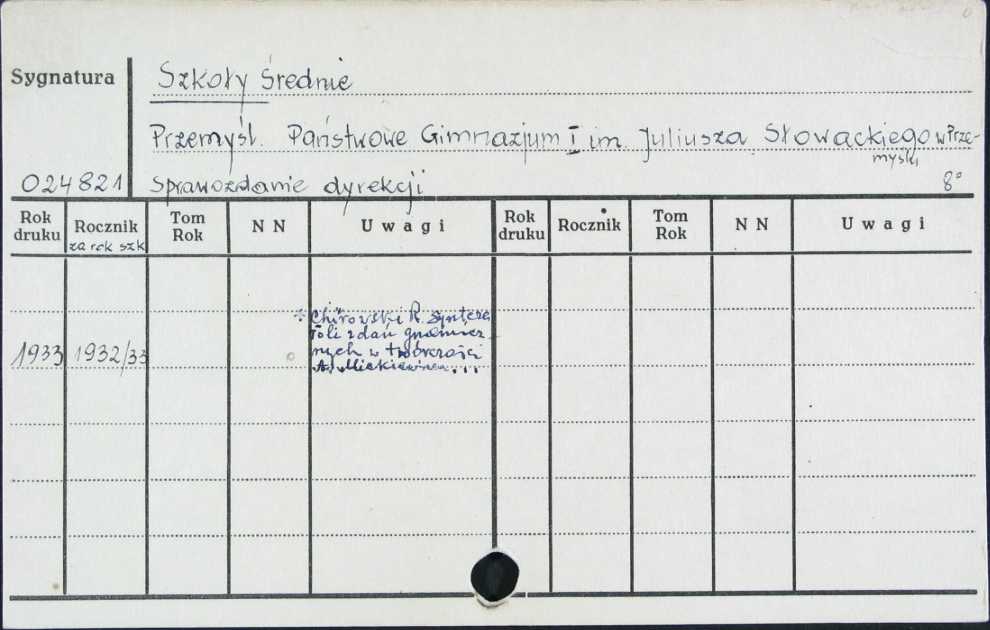 Sygnatura
Szkoły Średnie
Przemyśl. Państwowe Gimnazjum I im. Juliusza Słowackiego w Prze-
myślu
024821 Sprawozdanie dyrekcji 8°
Rok druku Rocznik za rok szk Tom Rok N N Uwagi Rok druku Rocznik Tom Rok N N Uwagi
* Chirowski R. Synteza
roli zdań gnomicz-
nych w twórczości
1933 1932/33 A. Mickiewicza...